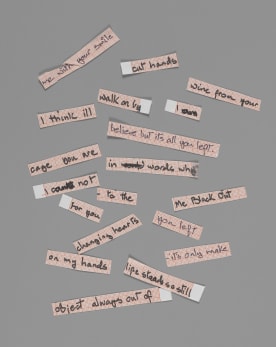 me with your smile
cut hands
wine from your
walk on by
I
I think ill
believe but it's all you left
cage you are
in words why
I not
to the
Me Black Out
for you
you left
changing hearts
it's only make
on my hands
life stands so still
object always out of